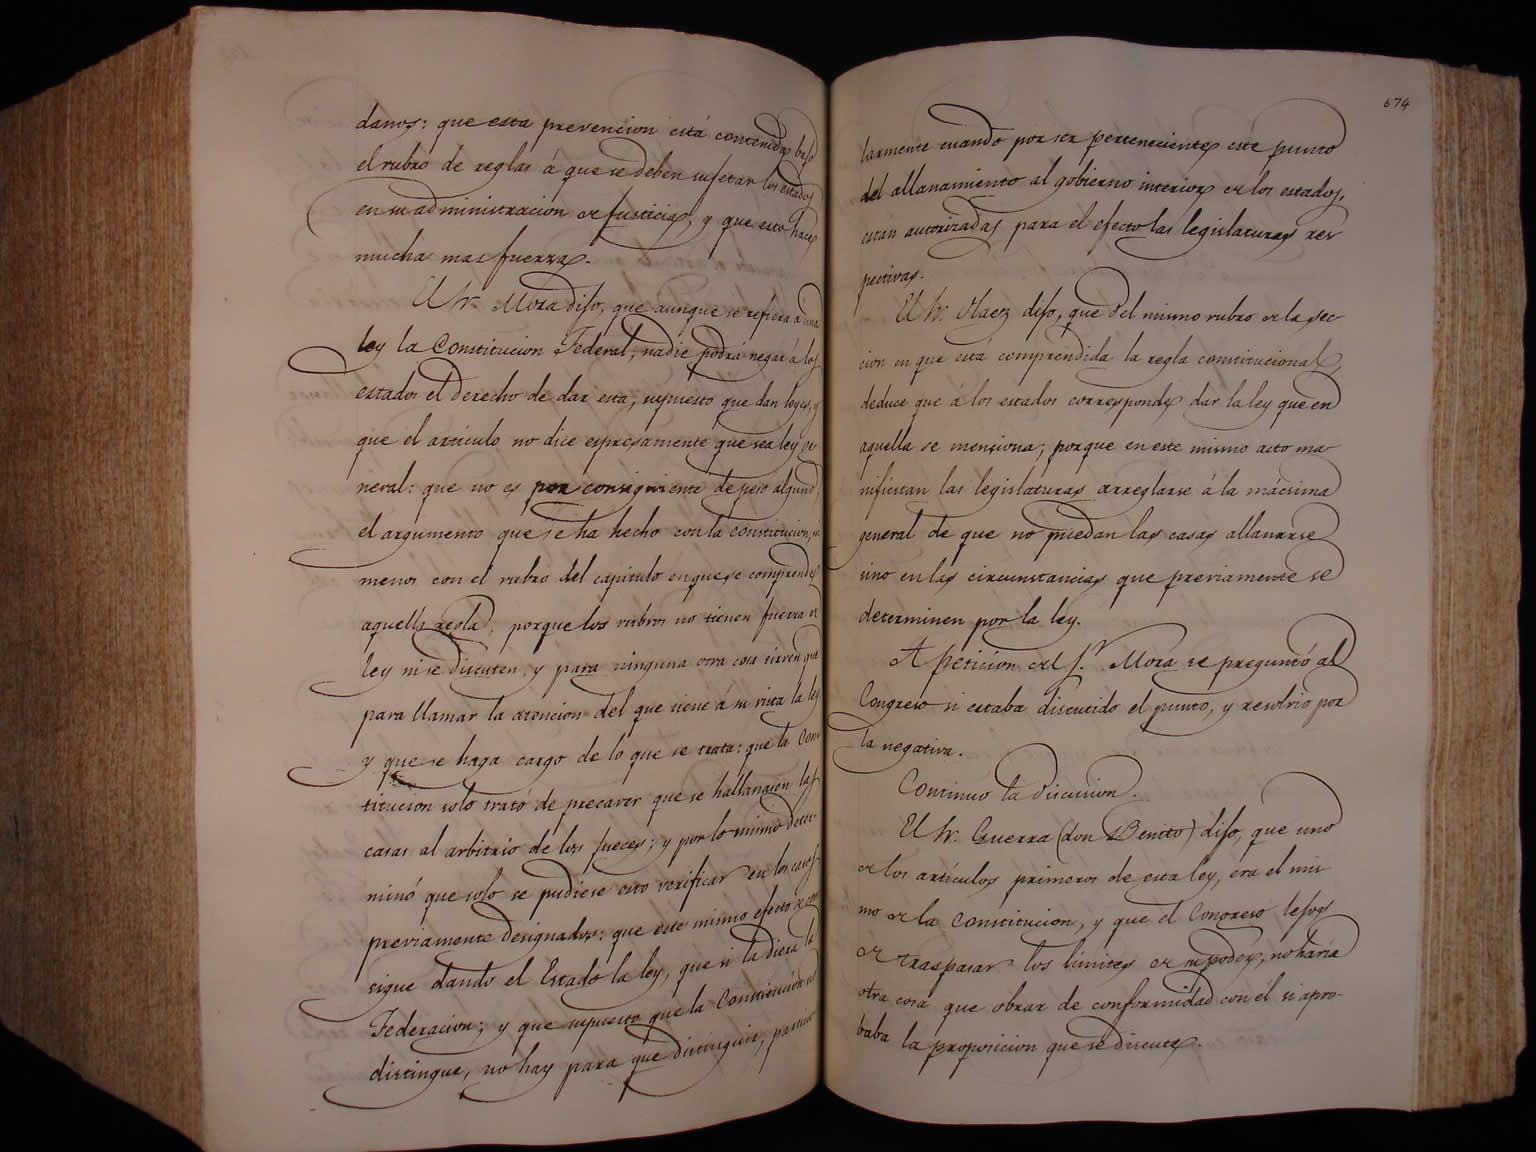 danos: que esta prevencion está contenida bajo
el rubro de reglas á que se deben sujetar los estados
en su administracion de justicia, y que esto hace
mucha mas fuerza.
El Sr. Mora dijo, que aunque se refiera á una
ley la Constitucion Federal, nadie podrá negar á los
estados el derecho de dar esta, supuesto que dan leyes, y
que el articulo no dice espresamente que sea ley ge
neral: que no es por consiguiente de peso alguno
el argumento que se ha hecho con la constitucion, ni
menos con el rubro del capitulo en que se comprende
aquella regla, porque los rubros no tienen fuerza de
ley ni se discuten, y para ninguna otra cosa sirven que
para llamar la atencion del que tiene á su vista la ley
y que se haga cargo de lo que se trata: que la Cons
titucion solo trató de precaver que se hallanasen las
casas al arbitrio de los jueces; y por lo mismo deter
minó que solo se pudiese esto verificar en los casos
previamente designados: que este mismo efecto se con
sigue dando el Estado la ley, que si la diera la
Federacion; y que supuesto que la Constitucion no
distingue, no hay para que distinguir, particu
674
larmente cuando por ser perteneciente este punto
del allanamiento al gobierno interior de los estados,
estan autorizadas para el efecto las legislaturas res
pectivas.
El Sr. Olaez dijo, que del mismo rubro de la sec
cion en que está comprendida la regla constitucional,
deduce que á los estados corresponde dar la ley que en
aquella se menciona; porque en este mismo acto ma
nifiestan las legislaturas arreglarse á la mácsima
general de que no puedan las casas allanarse
sino en las circunstancias que previamente se
determinen por la ley.
A peticion del Sr. Mora se preguntó al
Congreso si estaba discutido el punto, y resolvio por
la negativa.
Continuo la discusion.
El Sr. Guerra (don Benito) dijo, que uno
de los artículos primeros de esta ley, era el mis
mo de la Constitucion, y que el Congreso lejos
de traspasar los límites de su poder, no haria
otra cosa que obrar de conformidad con él si apro-
baba la proposicion que se discute.